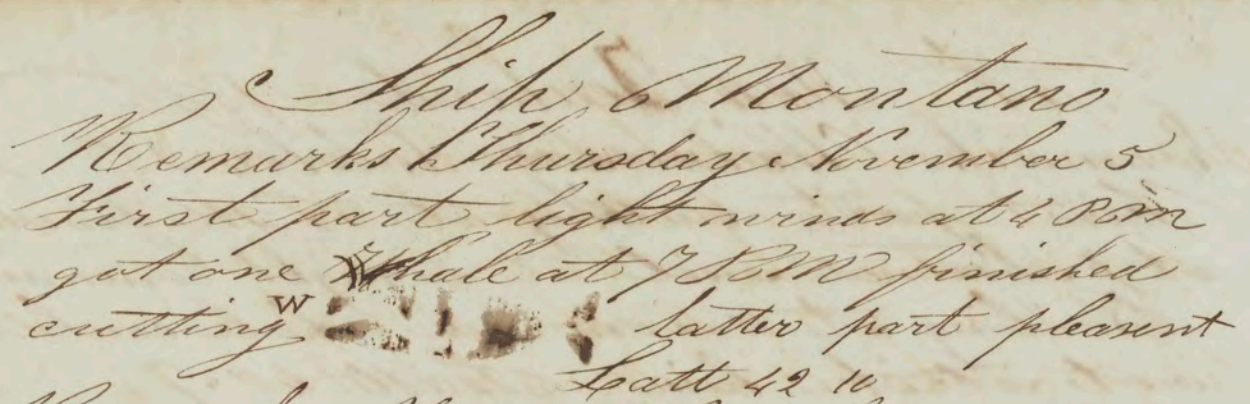 Ship Montano
Remarks Thursday November 5
First part light winds at 4 P m
got one Whale at 7 P M finished
cutting W latter part pleasent
Latt 42 10